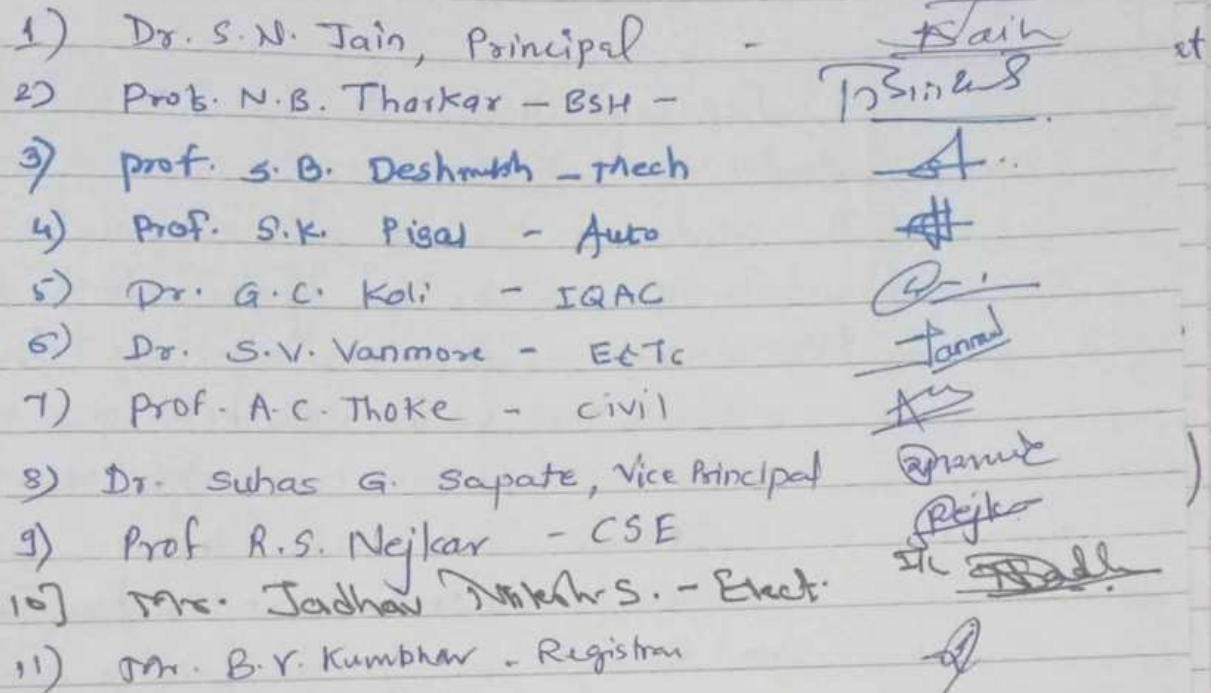 1) Dr. S. N. Jain, Principal - Jain
2) Prof. N.B. Tharkar - BSH -
3) prof. S. B. Deshmukh - Mech
4) Prof. S.K. Pisal - Auto
5) Dr. G.C. Koli - IQAC
6) Dr. S.V. Vanmore - E&Tc
7) Prof. A.C. Thoke - civil
8) Dr. Suhas G. Sapate, Vice Principal
9) Prof R.S. Nejkar - CSE
10] Mr. Jadhav S. - Elect. I/c
11) Mr. B.V. Kumbhar - Registrar